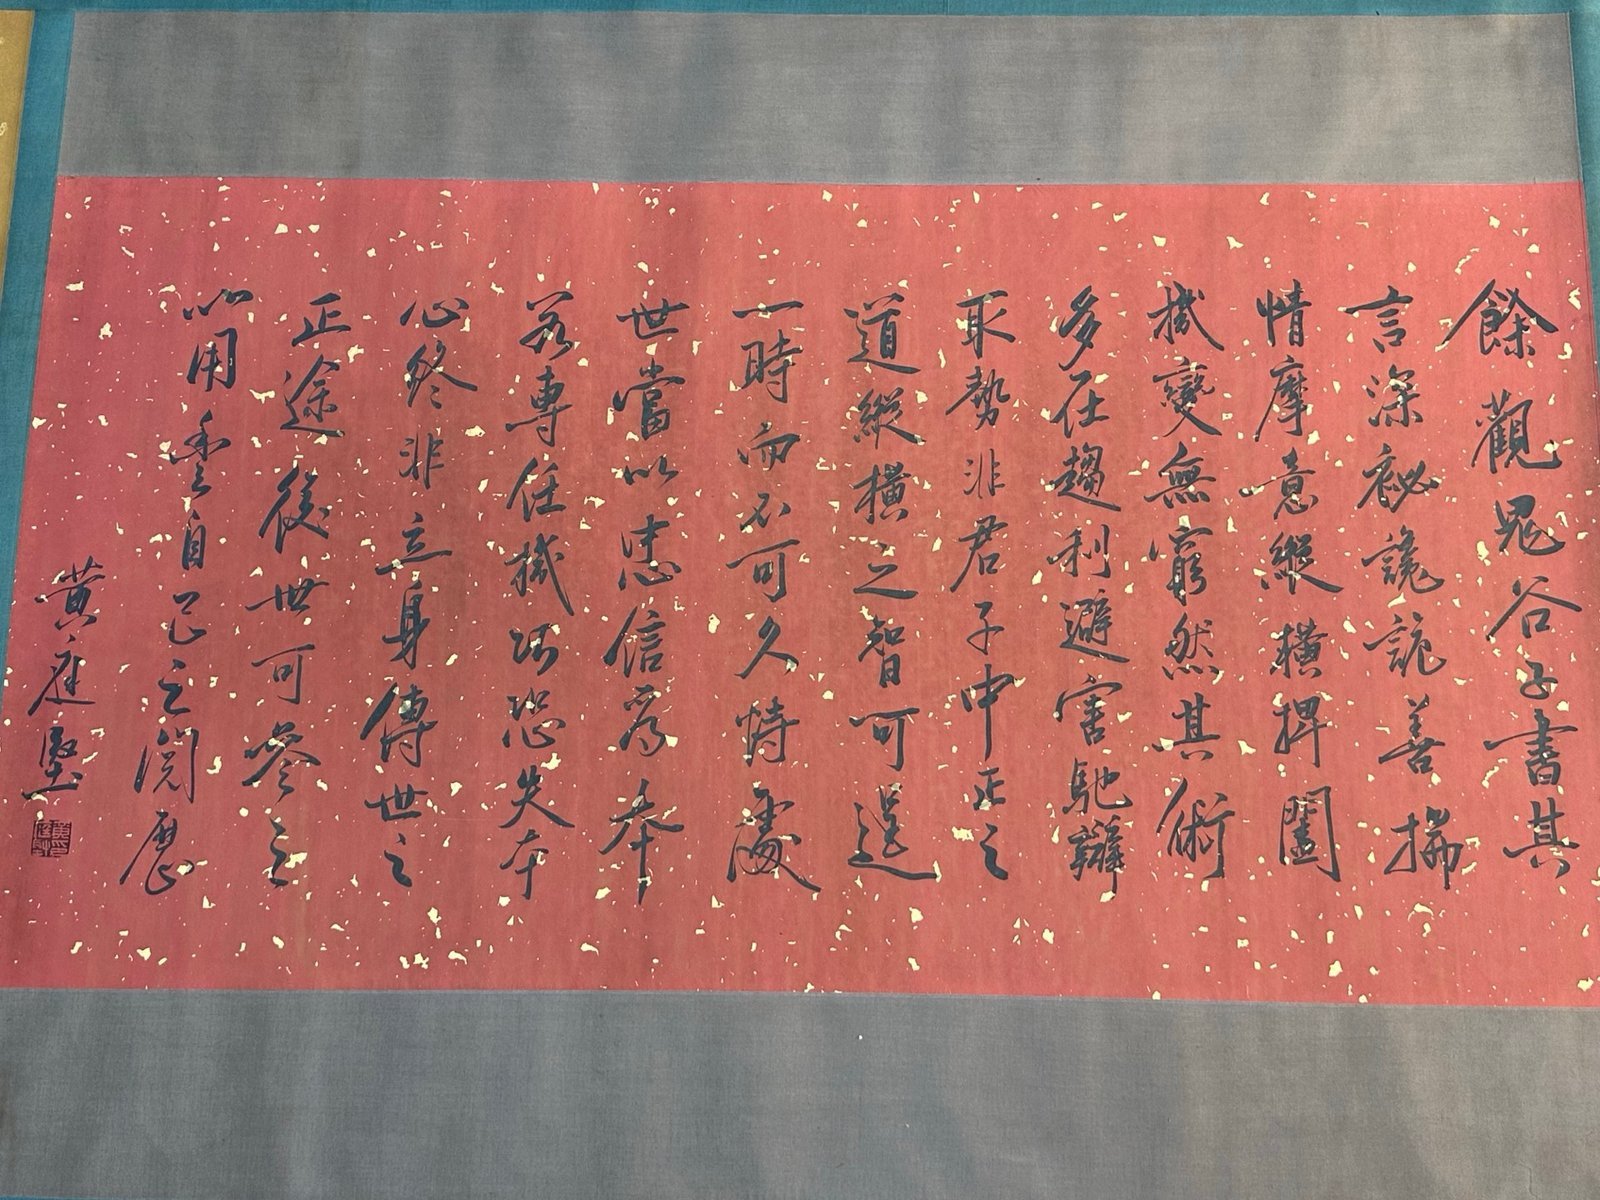 餘觀鬼谷子書其
言深秘詭譎善揣
情摩意縱橫捭闔
機變無窮然其術
多在趨利避害馳辯
取勢非君子中正之
道縱橫之智可逞
一時而不可久恃處
世當以忠信為本
若專任機巧恐失本
心終非立身傳世之
正途後世可參之
以用重自己之閱歷
黃庭堅